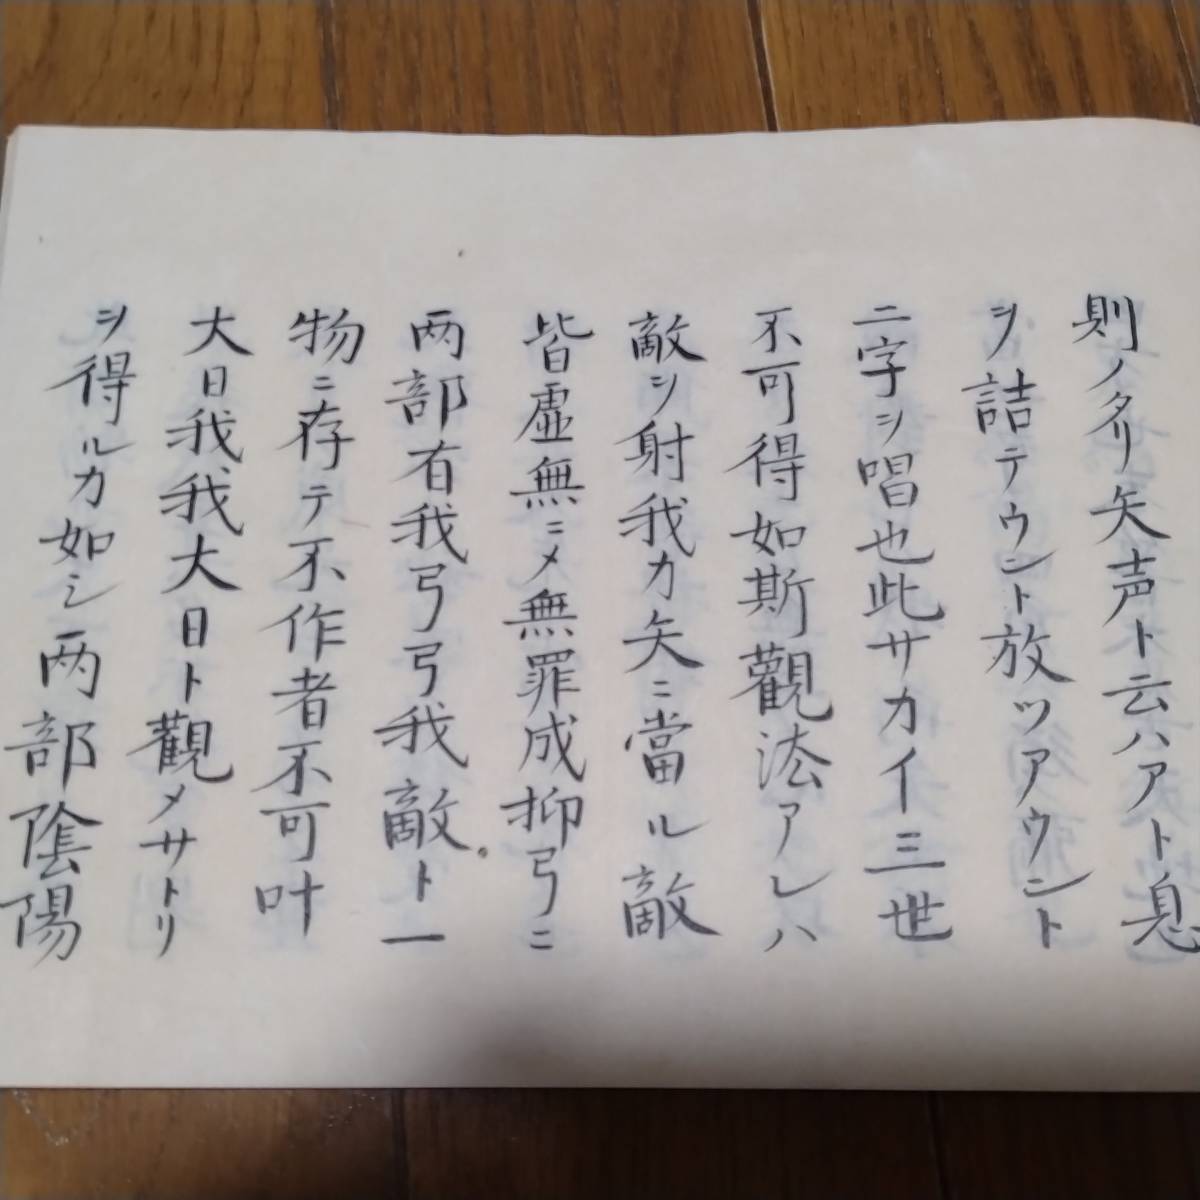 則ノタリ矢声ト云ハアト息
ヲ詰テウント放ツアウント
二字ヲ唱也此サカイ三世
不可得如斯觀法アレハ
敵ヲ射我カ矢ニ當ル敵
皆虚無ニメ無罪成抑弓ニ
両部有我弓弓我敵ト一
物ニ存テ不作者不可叶
大日我我大日ト觀メサトリ
ヲ得ルカ如シ両部陰陽